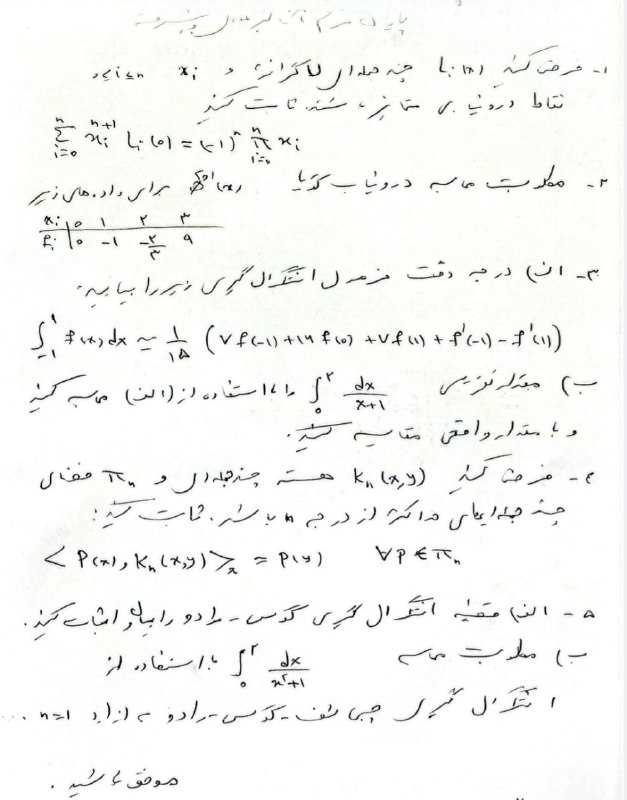 پایان ترم آنالیز عددی پیشرفته
۱- فرض کنید Lᵢ(x) چندجمله‌ای لاگرانژ و xᵢ 0≤i≤n
نقاط درونیابی متمایز باشند ثابت کنید
∑ᵢ₌₀ⁿ xᵢⁿ⁺¹ Lᵢ(0) = (-1)ⁿ ∏ᵢ₌₀ⁿ xᵢ
۲- مطلوبست محاسبه درونیاب گویا (x) برای داده‌های زیر
xᵢ | ۰ ۱ ۲ ۳
fᵢ | ۰ -۱ -۲/۳ ۹
۳- الف) درجه دقت فرمول انتگرال‌گیری زیر را بیابید.
∫₋₁¹ f(x)dx ≃ 1/۱۵ (۷f(-1)+۱۶f(0)+۷f(1)+f'(-1)-f'(1))
ب) مقدار تقریبی ∫₀² dx/(x+1) را با استفاده از (الف) محاسبه کنید
و با مقدار واقعی مقایسه کنید.
۴- فرض کنید Kₙ(x,y) هسته چندجمله‌ای و πₙ فضای
چندجمله‌ایهای حداکثر از درجه n باشد. ثابت کنید:
<P(x), Kₙ(x,y)>ₓ = P(y) ∀P∈πₙ
۵- الف) قضیه انتگرال گیری گوس-رادو را بیان و اثبات کنید.
ب) مطلوبست محاسبه ∫₀² dx/(x²+1) با استفاده از
انتگرال گیری چبی‌شف-گوس-رادو به ازاء n=1
موفق باشید.